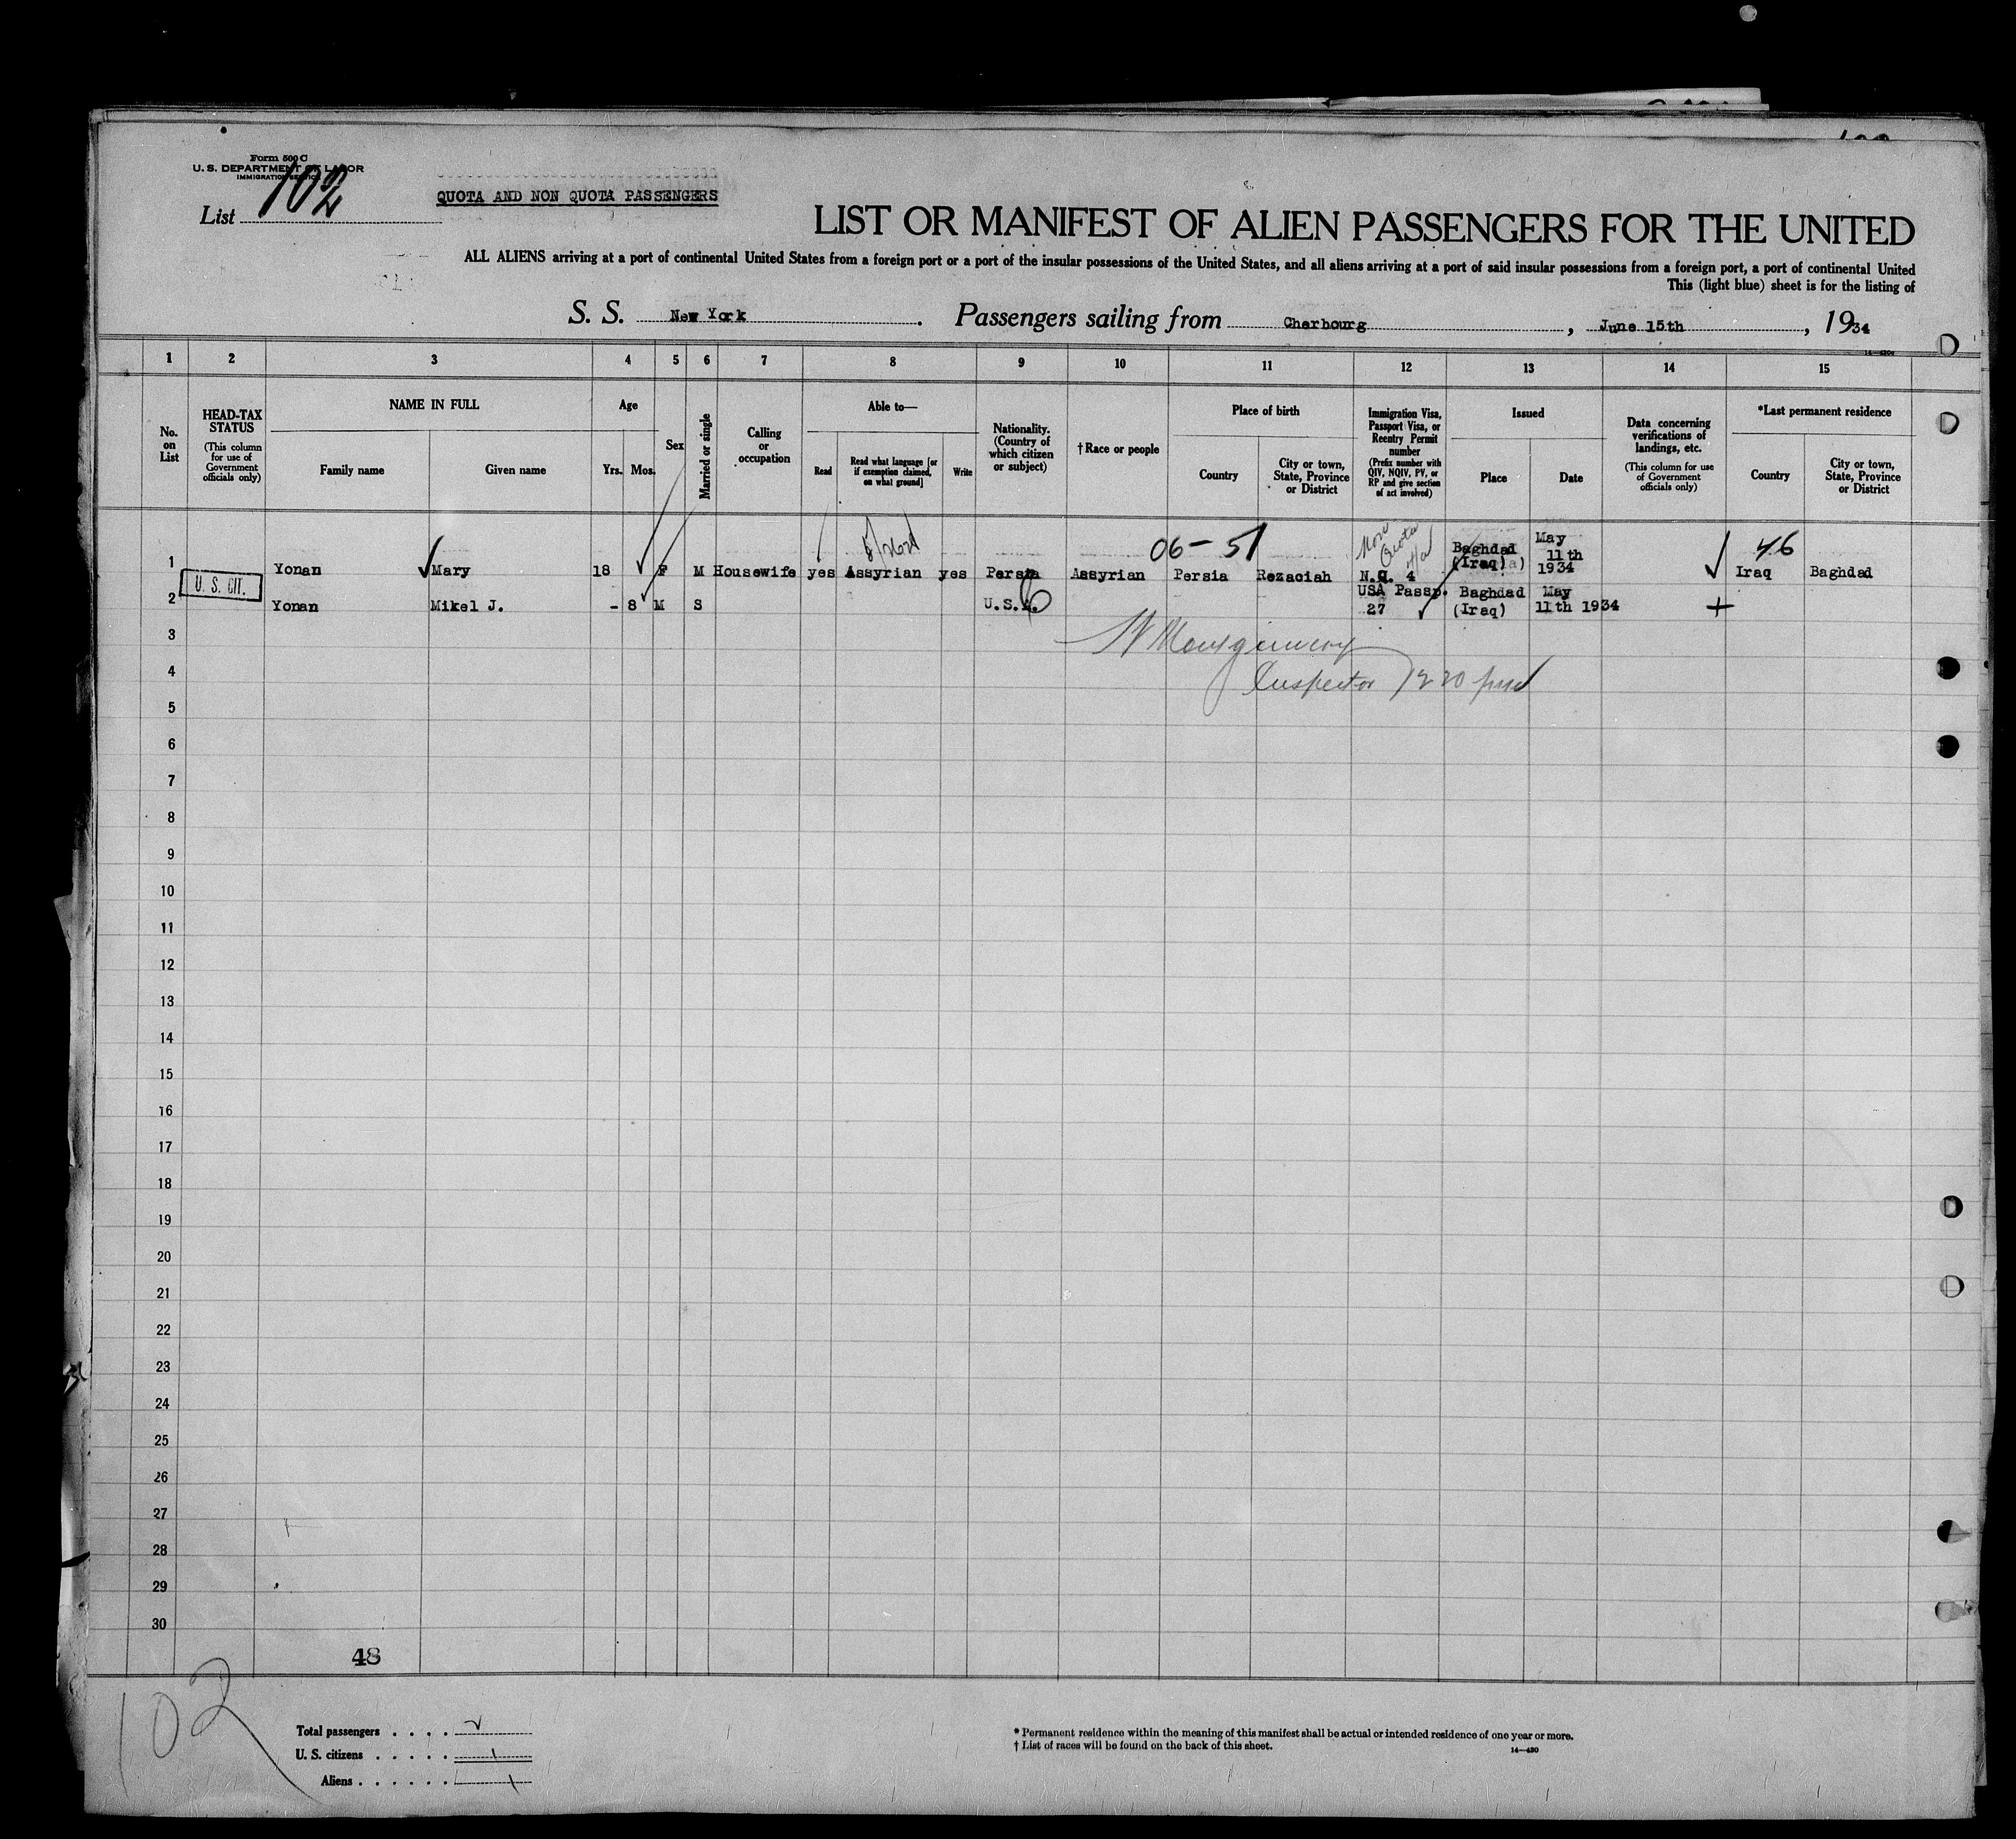 Form 500 C
U. S. DEPARTMENT OF LABOR
IMMIGRATION SERVICE
List 102
QUOTA AND NON QUOTA PASSENGERS
LIST OR MANIFEST OF ALIEN PASSENGERS FOR THE UNITED
ALL ALIENS arriving at a port of continental United States from a foreign port or a port of the insular possessions of the United States, and all aliens arriving at a port of said insular possessions from a foreign port, a port of continental United
This (light blue) sheet is for the listing of
S. S. New York. Passengers sailing from Cherbourg, June 15th, 1934
1 2 3 4 5 6 7 8 9 10 11 12 13 14 15
No. on List
HEAD-TAX STATUS (This column for use of Government officials only)
NAME IN FULL
Family name Given name
Age
Yrs. Mos.
Sex
Married or single
Calling or occupation
Able to—
Read Read what language [or if exemption claimed, on what ground] Write
Nationality. (Country of which citizen or subject)
†Race or people
Place of birth
Country City or town, State, Province or District
Immigration Visa, Passport Visa, or Reentry Permit number (Prefix number with QIV, NQIV, PV, or RP and give section of act involved)
Issued
Place Date
Data concerning verifications of landings, etc. (This column for use of Government officials only)
*Last permanent residence
Country City or town, State, Province or District
06-51 Non Quota 46
1 Yonan Mary 18 F M Housewife yes Assyrian yes Persia Assyrian Persia Rezaciah N.Q. 4 Baghdad (Iraq) May 11th 1934 Iraq Baghdad
U. S. CIT.
2 Yonan Mikel J. - 8 M S U.S.A. USA Passp. 27 Baghdad (Iraq) May 11th 1934
3
Montgomery
4
Inspector
5
6
7
8
9
10
11
12
13
14
15
16
17
18
19
20
21
22
23
24
25
26
27
28
29
30
48
102
Total passengers . . . .
U. S. citizens . . . . . 1
Aliens . . . . . . 1
* Permanent residence within the meaning of this manifest shall be actual or intended residence of one year or more.
† List of races will be found on the back of this sheet.
14—430